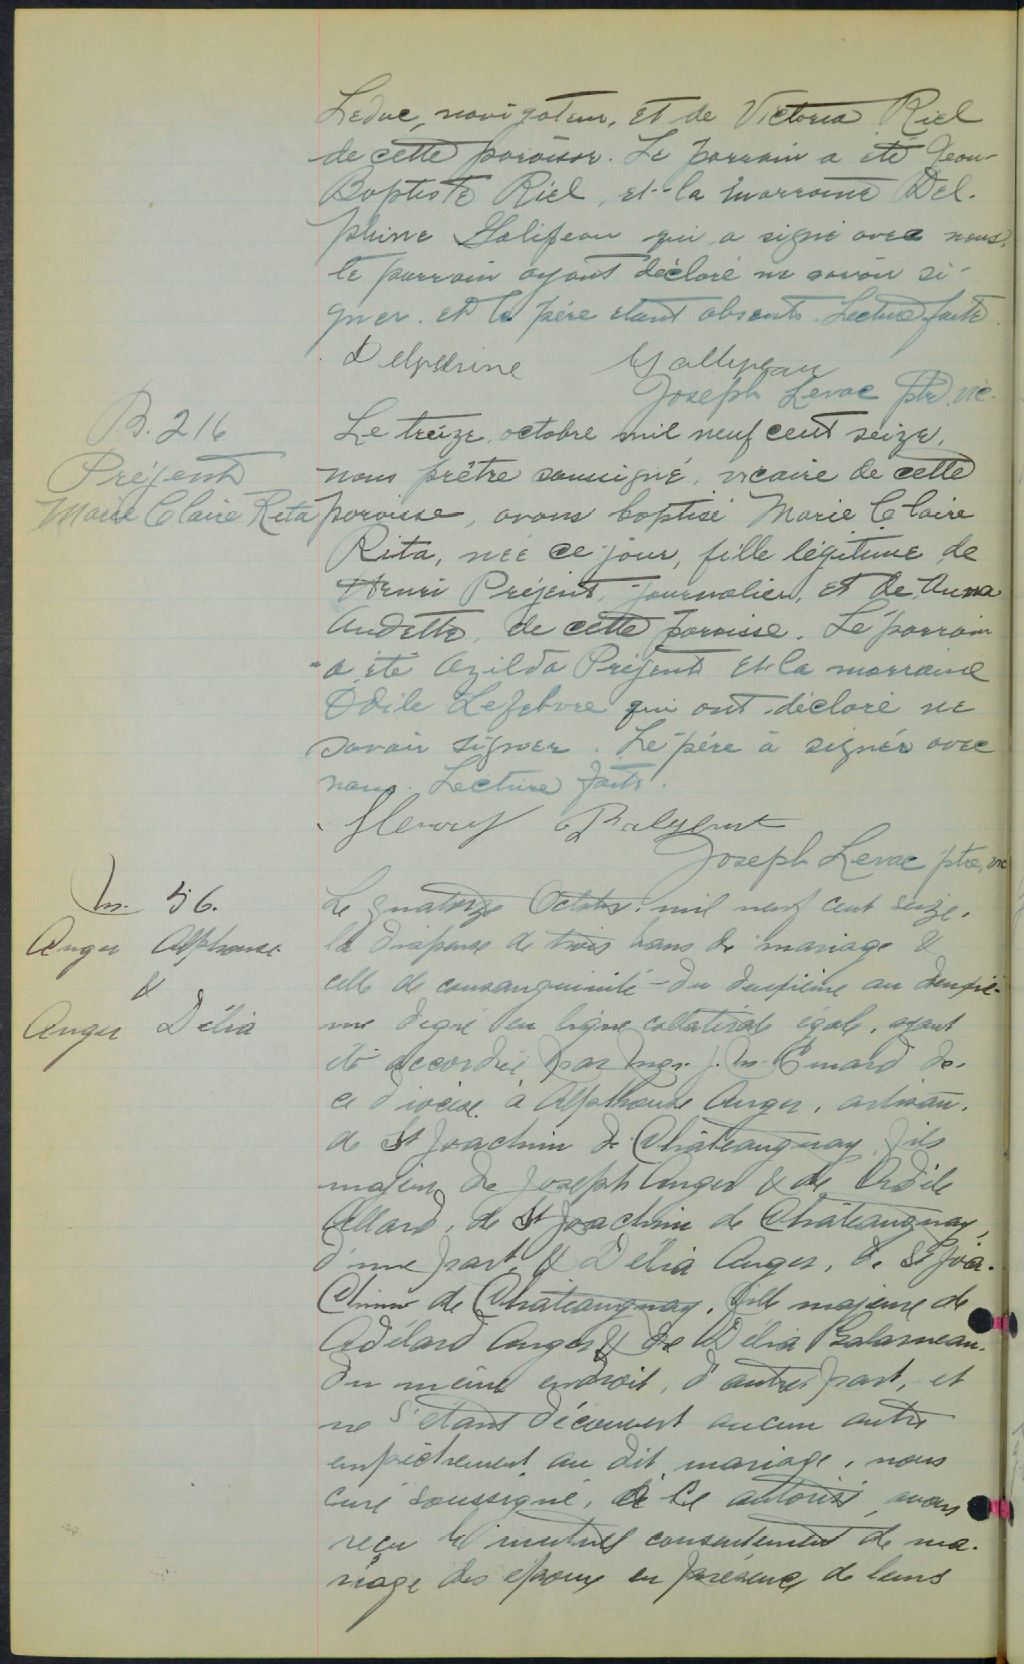 Leduc, navigateur, et de Victoria Riel
de cette paroisse. Le parrain a été Jean-
Baptiste Riel, et la marraine Del-
phine Galipeau qui a signé avec nous,
le parrain ayant déclaré ne savoir si-
gner. et le père étant absents. Lecture faite.
Delphine Gallipeau
Joseph Levac ptre vic.
B. 216
Préjent
Marie Claire Rita
Le treize, octobre mil neuf cent seize,
nous prêtre soussigné, vicaire de cette
paroisse, avons baptisé Marie Claire
Rita, née ce jour, fille légitime de
Henri Préjent, journalier, et de Anna
Audette, de cette paroisse. Le parrain
a été Azilda Préjent et la marraine
Odile Lefebvre qui ont déclaré ne
savoir signer. Le père à signér avec
nous. Lecture faite.
Henry
Joseph Levac ptre, vic
M. 56.
Anger Alphonse
&
Anger Délia
Le quatorze Octobre, mil neuf cent seize,
la dispense de trois bans de mariage &
celle de consanguinité du deuxième au deuxiè-
me degré en ligne collatérale égale, ayant
été accordée par Mgr. J. M. Emard de
ce diocèse, à Alphonse Anger, artisan,
de St Joachim de Châteauguay, fils
majeur de Joseph Anger & de Odile
Allard, de St Joachim de Châteauguay,
d'une part, & Délia Anger, de St Joa-
chim de Châteauguay, fille majeure de
Adélard Anger & de Délia Galarneau
du même endroit, d'autre part, et
ne s'étant découvert aucun autre
empêchement au dit mariage, nous
curé soussigné, à ce autorisé avons
reçu le mutuel consentement de ma-
riage des époux en présence de leurs